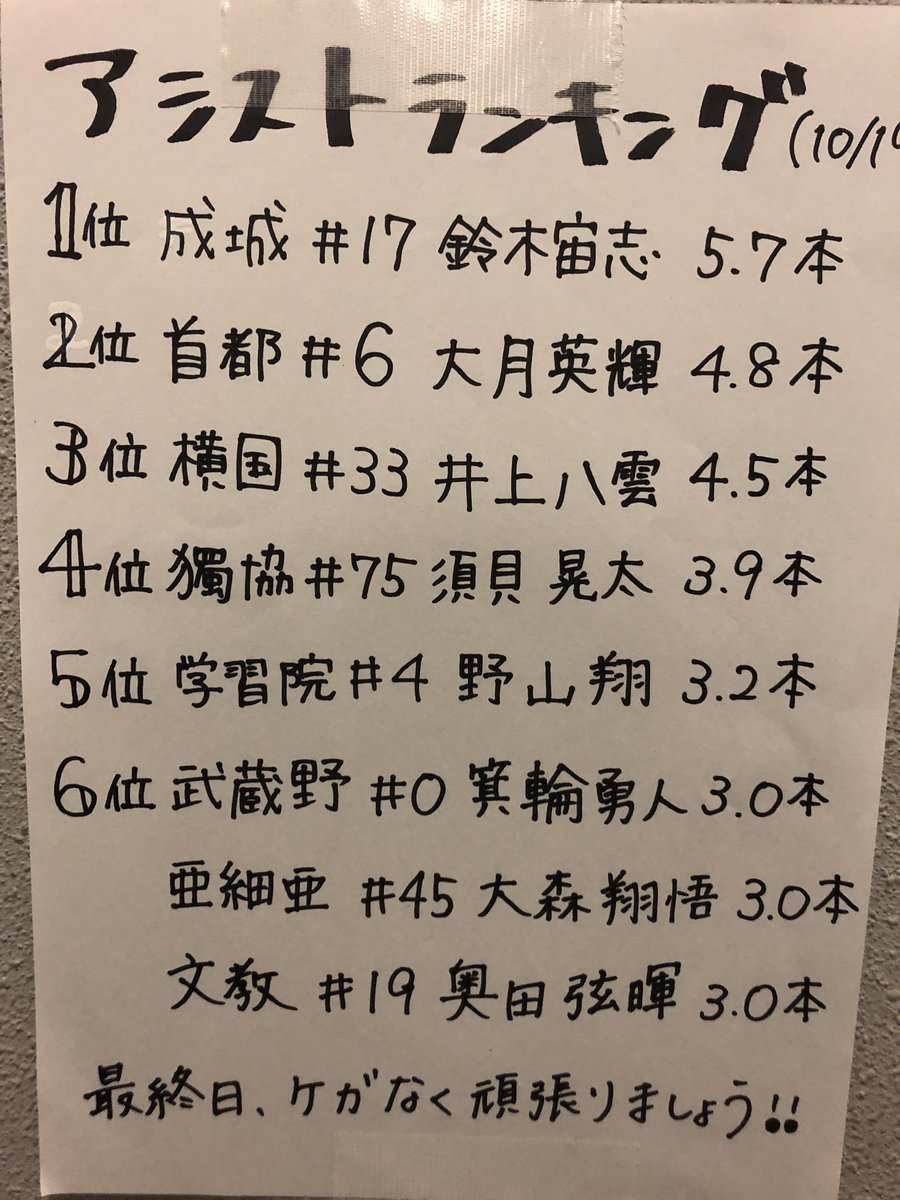 アシストランキング(10/19
1位 成城 #17 鈴木宙志 5.7本
2位 首都 #6 大月英輝 4.8本
3位 横国 #33 井上八雲 4.5本
4位 獨協 #75 須貝晃太 3.9本
5位 学習院 #4 野山翔 3.2本
6位 武蔵野 #0 箕輪勇人 3.0本
亜細亜 #45 大森翔悟 3.0本
文教 #19 奥田弦暉 3.0本
最終日、ケガなく頑張りましょう!!